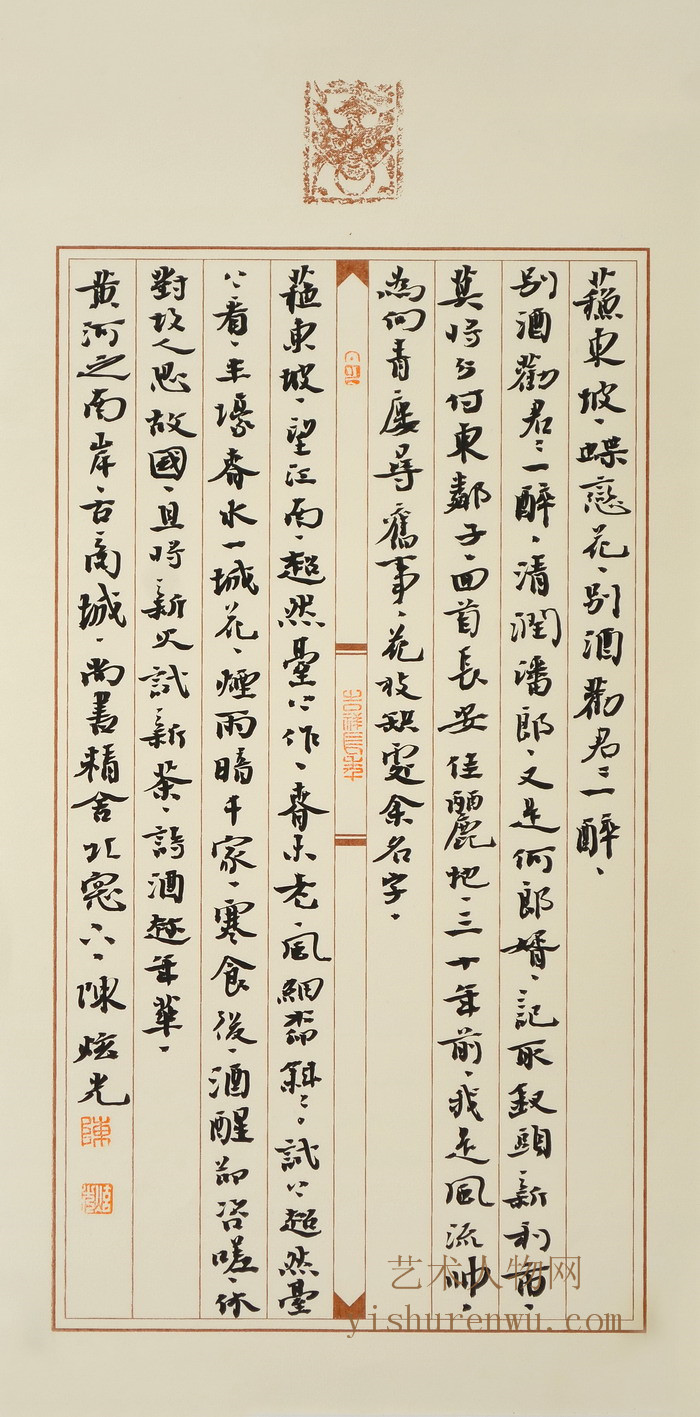 蘇東坡、蝶戀花、別酒勸君三一醉、
別酒勸君〻一醉、清潤潘郎、又是何郎婿、記取釵頭新利市、
莫時分付東鄰子、回首長安佳麗地、三十年前、我是風流帥、
為向青廔尋舊事、花枝缺處余名字、
蘇東坡、望江南、超然臺〻作、春未老、風細柳斜〻。試〻超然臺
〻看、半壕春水一城花、煙雨暗千家、寒食後、酒醒卻咨嗟、休
對故人思故國、且時新火試新茶、詩酒趁年華、
黃河之南岸、古商城、尚書精舍北窗下、陳炫光
吉祥長年
陳
艺术人物网
yishurenwu.com